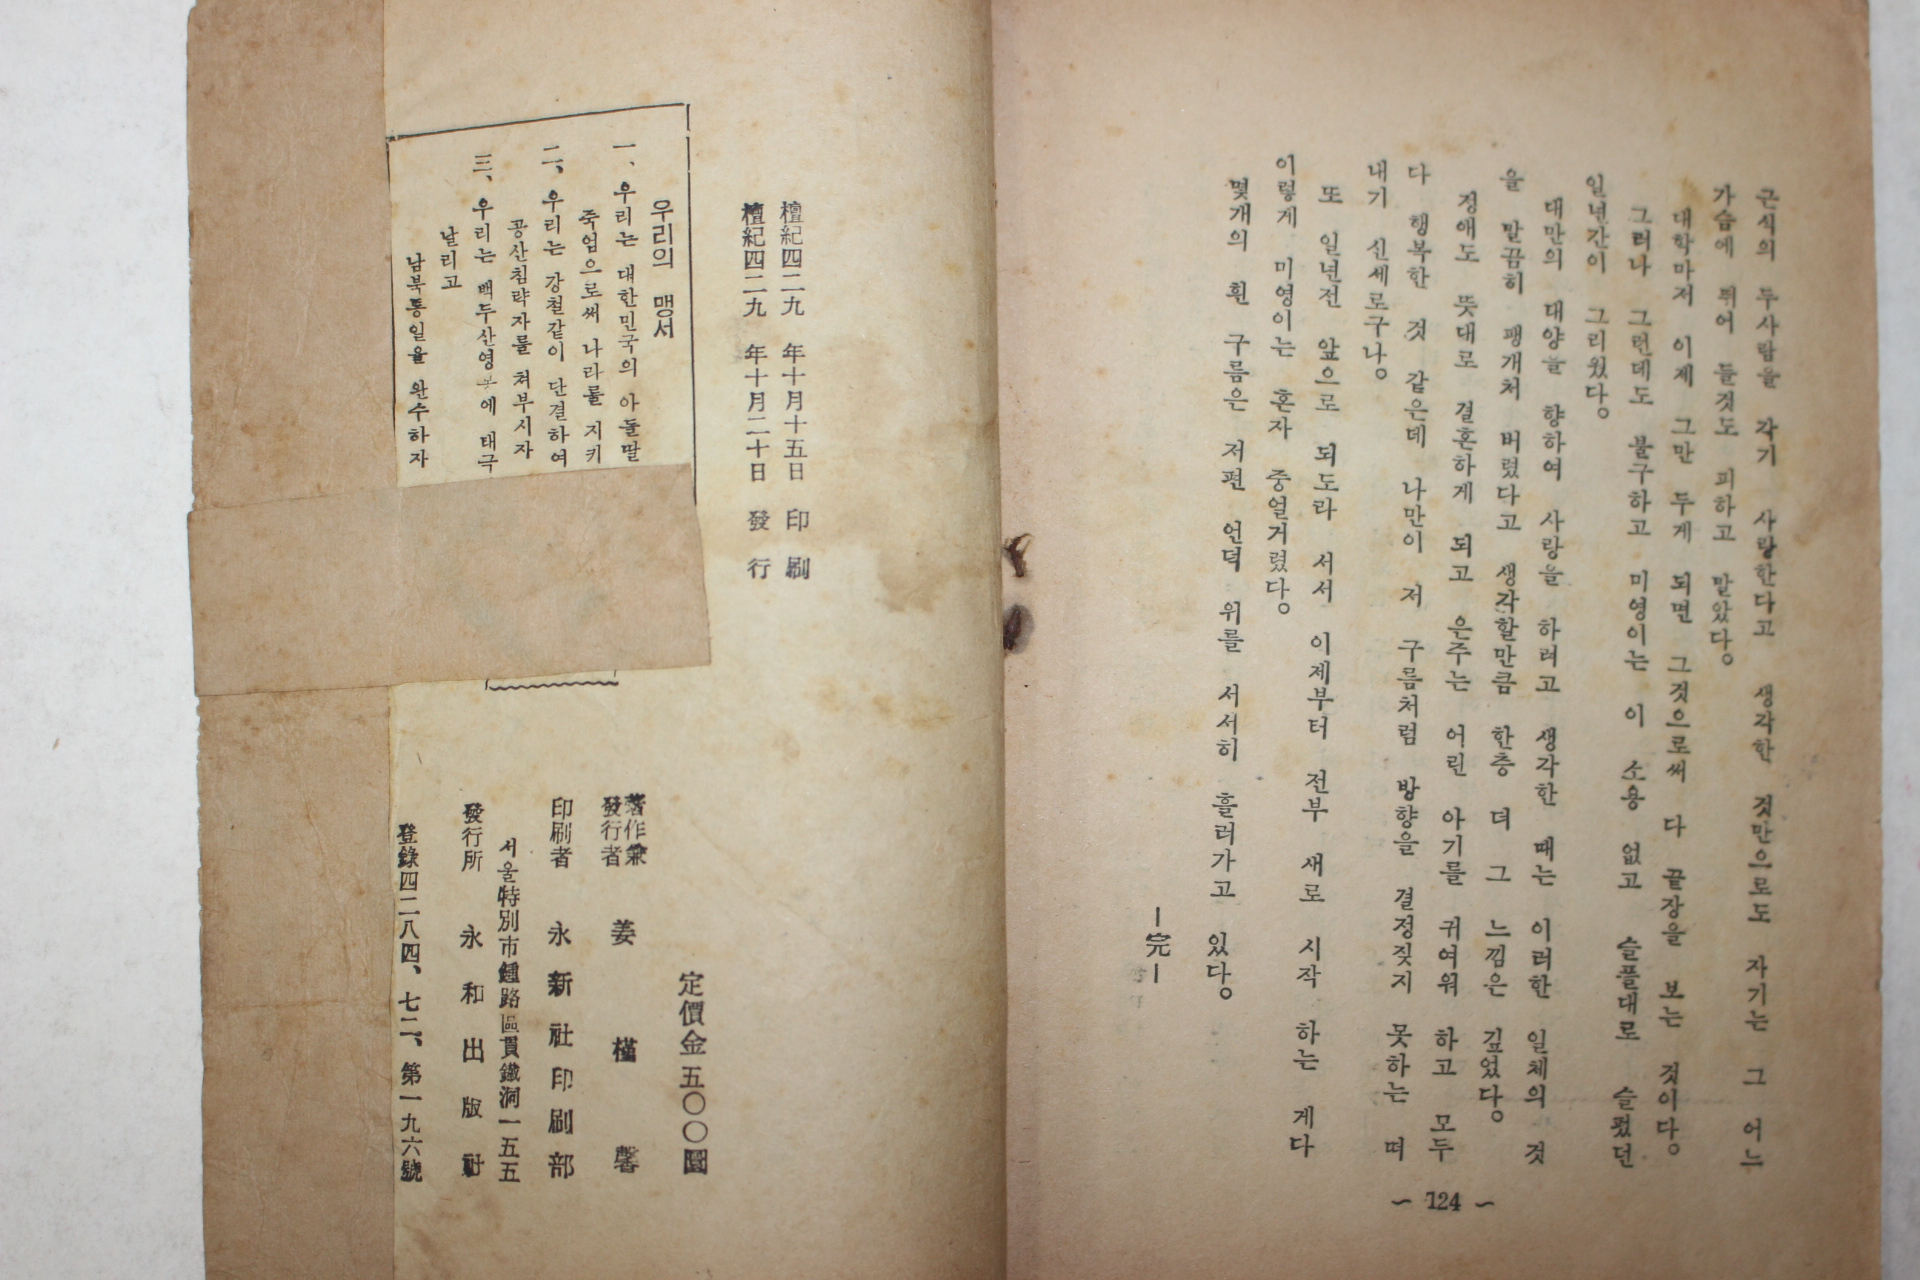 근식의 두사람을 각기 사랑한다고 생각한 것만으로도 자기는 그 어느
가슴에 뛰어 들것도 피하고 말았다。
대학마저 이제 그만 두게 되면 그것으로써 다 끝장을 보는 것이다。
그러나 그런데도 불구하고 미영이는 이 소용 없고 슬플대로 슬펐던
일년간이 그리웠다。
대만의 대양을 향하여 사랑을 하려고 생각한 때는 이러한 일체의 것
을 말끔히 팽개처 버렸다고 생각할만큼 한층 더 그 느낌은 깊었다。
정애도 뜻대로 결혼하게 되고 은주는 어린 아기를 귀여워 하고 모두
다 행복한 것 같은데 나만이 저 구름처럼 방향을 결정짖지 못하는 떠
내기 신세로구나。
또 일년전 앞으로 되도라 서서 이제부터 전부 새로 시작 하는 게다
이렇게 미영이는 혼자 중얼거렸다。
몇개의 흰 구름은 저편 언덕 위를 서서히 흘러가고 있다。
―完―
~ 124 ~
檀紀四二九 年十月十五日 印刷
檀紀四二九 年十月二十日 發行
우리의 맹서
一、우리는 대한민국의 아들딸
죽엄으로써 나라를 지키
二、우리는 강철같이 단결하여
공산침략자를 처부시자
三、우리는 백두산영봉에 태극
날리고
남북통일을 완수하자
定價金五〇〇圜
著作兼
發行者 姜槿馨
印刷者 永新社印刷部
서울特別市鍾路區貫鐵洞一五五
發行所 永和出版社
登錄四二八四、七二、第一九六號